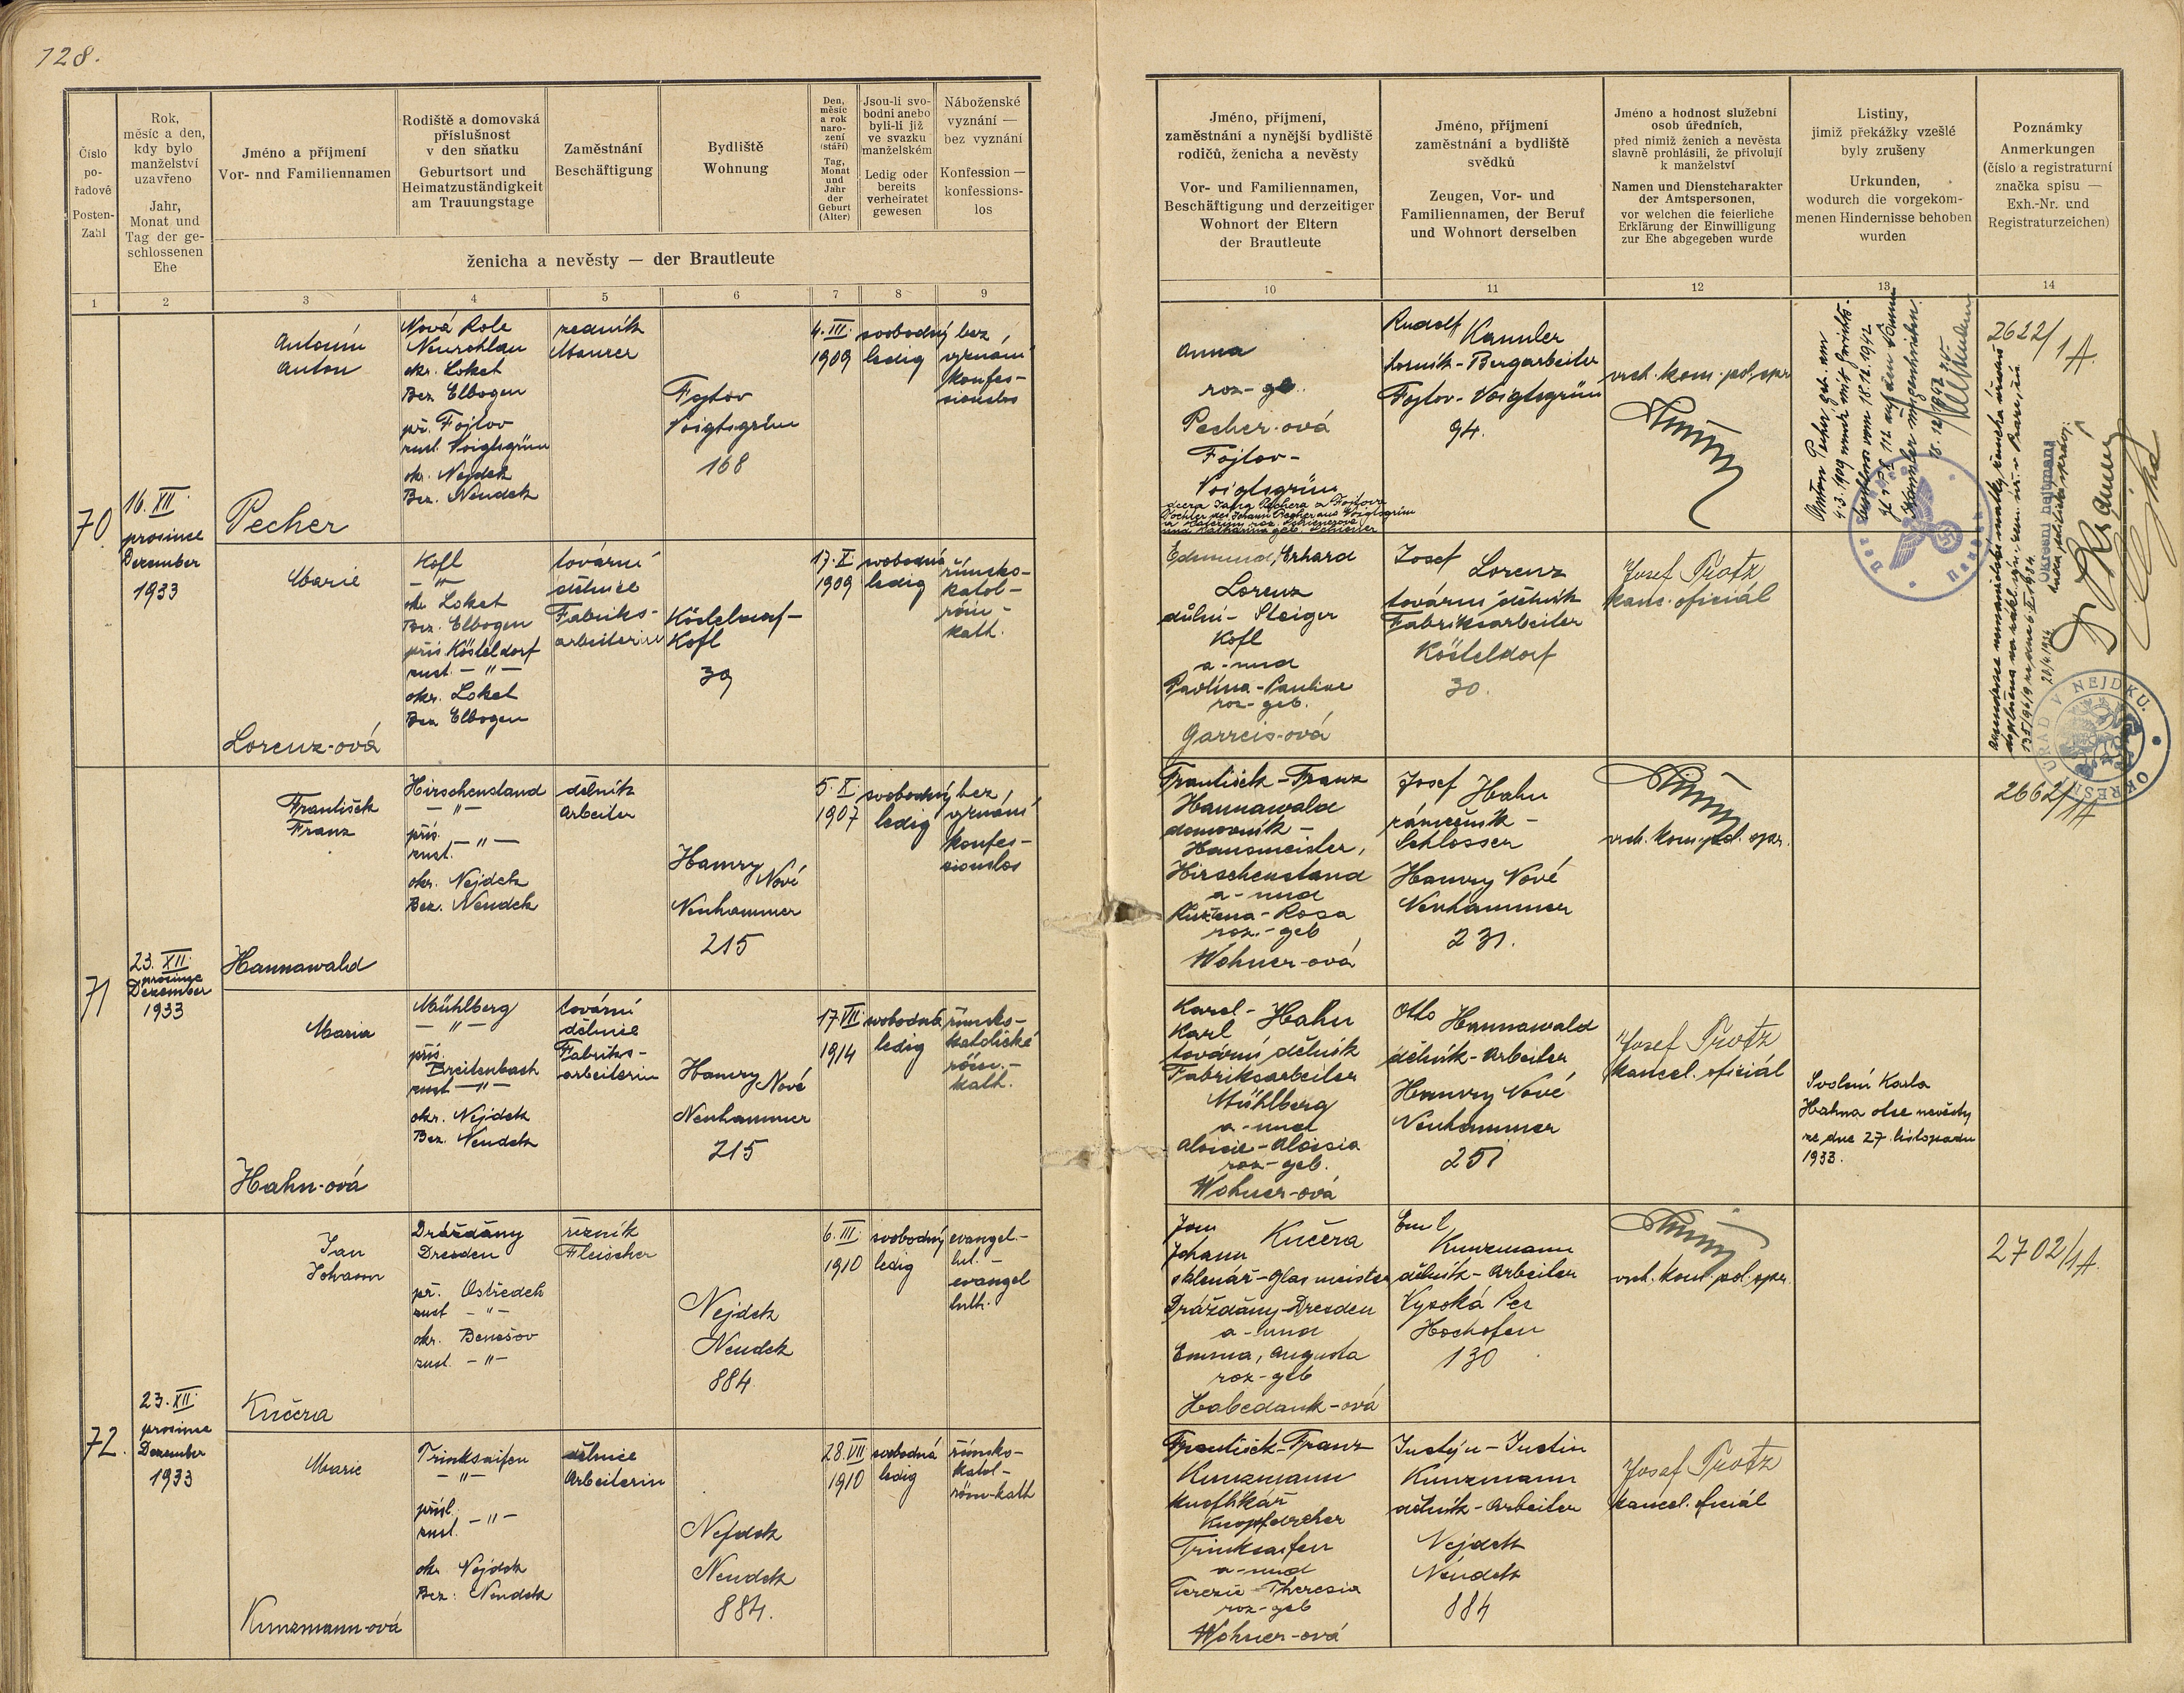 128.
Číslo
po-
řadové
Posten-
Zahl
Rok,
měsíc a den,
kdy bylo
manželství
uzavřeno
Jahr,
Monat und
Tag der ge-
schlossenen
Ehe
Jméno a příjmení
Vor- und Familiennamen
Rodiště a domovská
příslušnost
v den sňatku
Geburtsort und
Heimatzuständigkeit
am Trauungstage
Zaměstnání
Beschäftigung
Bydliště
Wohnung
Den,
měsíc
a rok
naro-
zení
(stáří)
Tag,
Monat
und
Jahr
der
Geburt
(Alter)
Jsou-li svo-
bodni anebo
byli-li již
ve svazku
manželském
Ledig oder
bereits
verheiratet
gewesen
Náboženské
vyznání —
bez vyznání
Konfession —
konfessions-
los
ženicha a nevěsty — der Brautleute
1 2 3 4 5 6 7 8 9
Jméno, příjmení,
zaměstnání a nynější bydliště
rodičů, ženicha a nevěsty
Vor- und Familiennamen,
Beschäftigung und derzeitiger
Wohnort der Eltern
der Brautleute
Jméno, příjmení
zaměstnání a bydliště
svědků
Zeugen, Vor- und
Familiennamen, der Beruf
und Wohnort derselben
Jméno a hodnost služební
osob úředních,
před nimiž ženich a nevěsta
slavně prohlásili, že přivolují
k manželství
Namen und Dienstcharakter
der Amtspersonen,
vor welchen die feierliche
Erklärung der Einwilligung
zur Ehe abgegeben wurde
Listiny,
jimiž překážky vzešlé
byly zrušeny
Urkunden,
wodurch die vorgekom-
menen Hindernisse behoben
wurden
Poznámky
Anmerkungen
(číslo a registraturní
značka spisu —
Exh.-Nr. und
Registraturzeichen)
10 11 12 13 14
70
16. XII.
prosince
Dezember
1933
Antonín
Anton
Pecher
Nová Role
Neurohlau
okr. Loket
Bez Elbogen
př. Fojtov
zust. Voigtsgrün
okr. Nejdek
Bez. Neudek
zedník
Maurer
Fojtov
Voigtsgrün
168
4. III.
1909
svobodný
ledig
bez
vyznání
konfes-
sionslos
Anna
roz-geb.
Pecher-ová
Fojtov-
Voigtsgrün
dcera Jana Pechera z Fojtova
Tochter des Johann Pecher aus Voigtsgrün
Rudolf Kannler
horník-Bergarbeiter
Fojtov-Voigtsgrün
94.
vrch. kom. pol. spr.
2622/1A
Marie
Lorenz-ová
Kofl
-"-
okr. Loket
Bez. Elbogen
přís Kösteldorf
zust. -"-
okr. Loket
Bez Elbogen
tovární
dělnice
Fabriks-
arbeiterin
Kösteldorf-
Kofl
39
17. X.
1909
svobodná
ledig
římsko-
katol-
röm-
kath.
Edmund, Erhard
Lorenz
důlní-Steiger
Kofl
a-und
Pavlína-Pauline
roz-geb.
Garreis-ová
Josef Lorenz
tovární dělník
Fabriksarbeiter
Kösteldorf
30.
Josef Protz
kanc. oficiál
OKRESNÍ ÚŘAD V NEJDKU.
71
23. XII.
prosince
Dezember
1933
František
Franz
Hannawald
Hirschenstand
-"-
přís.
zust. -"-
okr. Nejdek
Bez. Neudek
dělník
Arbeiter
Hamry Nové
Neuhammer
215
5. X.
1907
svobodný
ledig
bez
vyznání
konfes-
sionslos
František-Franz
Hannawald
domovník-
Hausmeister,
Hirschenstand
a-und
Růžena-Rosa
roz.-geb
Wohner-ová
Josef Hahn
zámečník-
Schlosser
Hamry Nové
Neuhammer
231.
vrch. kom. pol. spr.
2662/1A
Maria
Hahn-ová
Mühlberg
-"-
přís.
Breitenbach
zust -"-
okr. Nejdek
Bez. Neudek
tovární
dělnice
Fabriks-
arbeiterin
Hamry Nové
Neuhammer
215
17. VII.
1914
svobodná
ledig
římsko-
katolické
röm.-
kath.
Karel- Hahn
Karl
tovární dělník
Fabriksarbeiter
Mühlberg
a-und
Aloisie-Aloisia
roz-geb.
Wohner-ová
Otto Hannawald
dělník-Arbeiter
Hamry Nové
Neuhammer
251
Josef Protz
kancel. oficiál
Svolení Karla
Hahna otce nevěsty
ze dne 27. listopadu
1933.
72.
23. XII.
prosince
Dezember
1933
Jan
Johann
Kučera
Drážďány
Dresden
př. Ostředek
zust -"-
okr. Benešov
zust. -"-
řezník
Fleischer
Nejdek
Neudek
884
6. III.
1910
svobodný
ledig
evangel.-
lut.-
evangel
luth.
Jan
Johann Kučera
sklenář-Glasmeister
Drážďány-Dresden
a-und
Emma, Augusta
roz-geb
Habedank-ová
Emil
Kunzmann
dělník-Arbeiter
Vysoká Pec
Hochofen
130
vrch. kom. pol. spr.
2702/1A.
Marie
Kunzmann-ová
Trinksaifen
-"-
přísl.
zust. -"-
okr. Nejdek
Bez. Neudek
dělnice
Arbeiterin
Nejdek
Neudek
884.
28. VII
1910
svobodná
ledig
římsko-
katol-
röm-kath
František-Franz
Kunzmann
knoflíkář
Knopfdreher
Trinksaifen
a-und
Terezie-Theresia
roz-geb
Wohner-ová
Justýn-Justin
Kunzmann
dělník-Arbeiter
Nejdek
Neudek
884
Josef Protz
kancel. oficiál